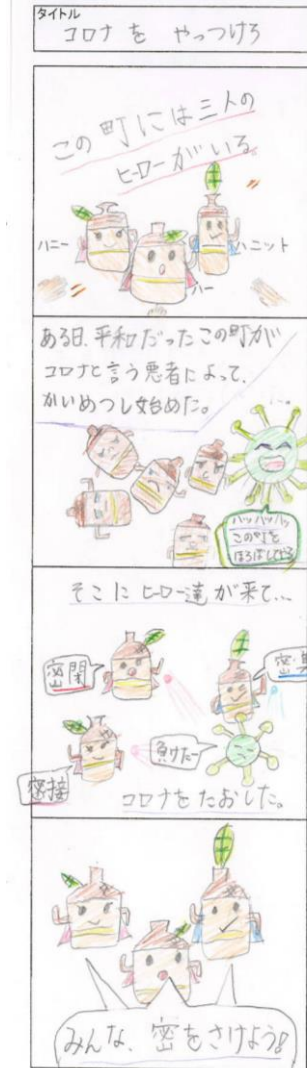 タイトル
コロナを やっつけろ
この町には三人の
ヒーローがいる。
ハニー
ハニット
ハー
ある日、平和だったこの町が
コロナと言う悪者によって、
かいめつし始めた。
ハッハッハッ
この町を
ほろぼしてやる
そこにヒーロー達が来て…
密閉
密集
密接
負けたー
コロナをたおした。
みんな、密をさけよう!